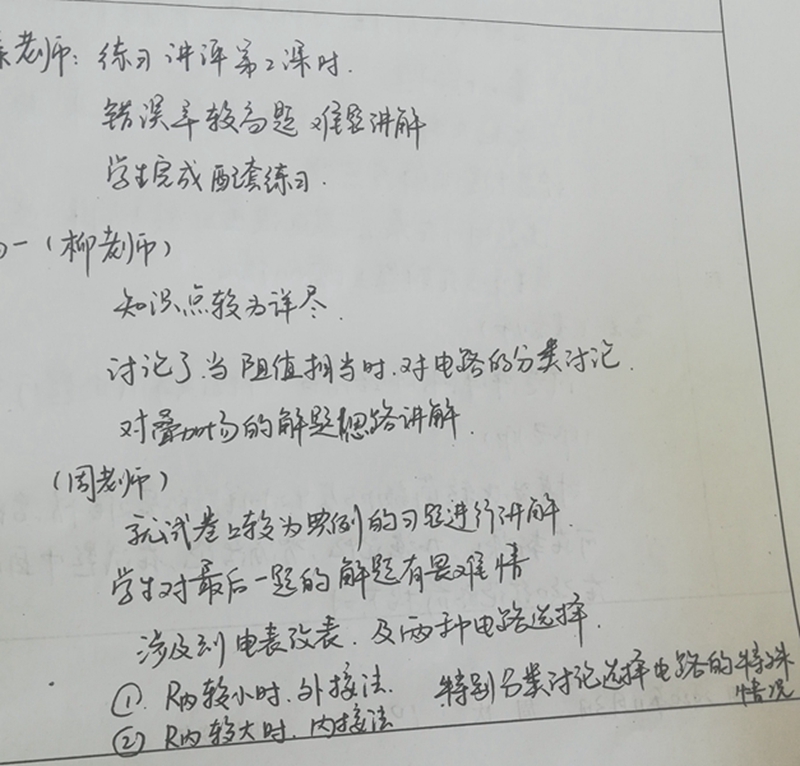 老师：练习讲评第2课时.
错误率较高题 难题讲解
学生完成配套练习.
一（柳老师）
知识点较为详尽.
讨论了.当阻值相当时.对电路的分类讨论.
对叠加场的解题思路讲解.
（周老师）
就试卷上较为典例的习题进行讲解.
学生对最后一题的解题有畏难情
涉及到电表改表.及两种电路选择.
① R内较小时.外接法. 特别分类讨论选择电路的特殊
情况
② R内较大时.内接法